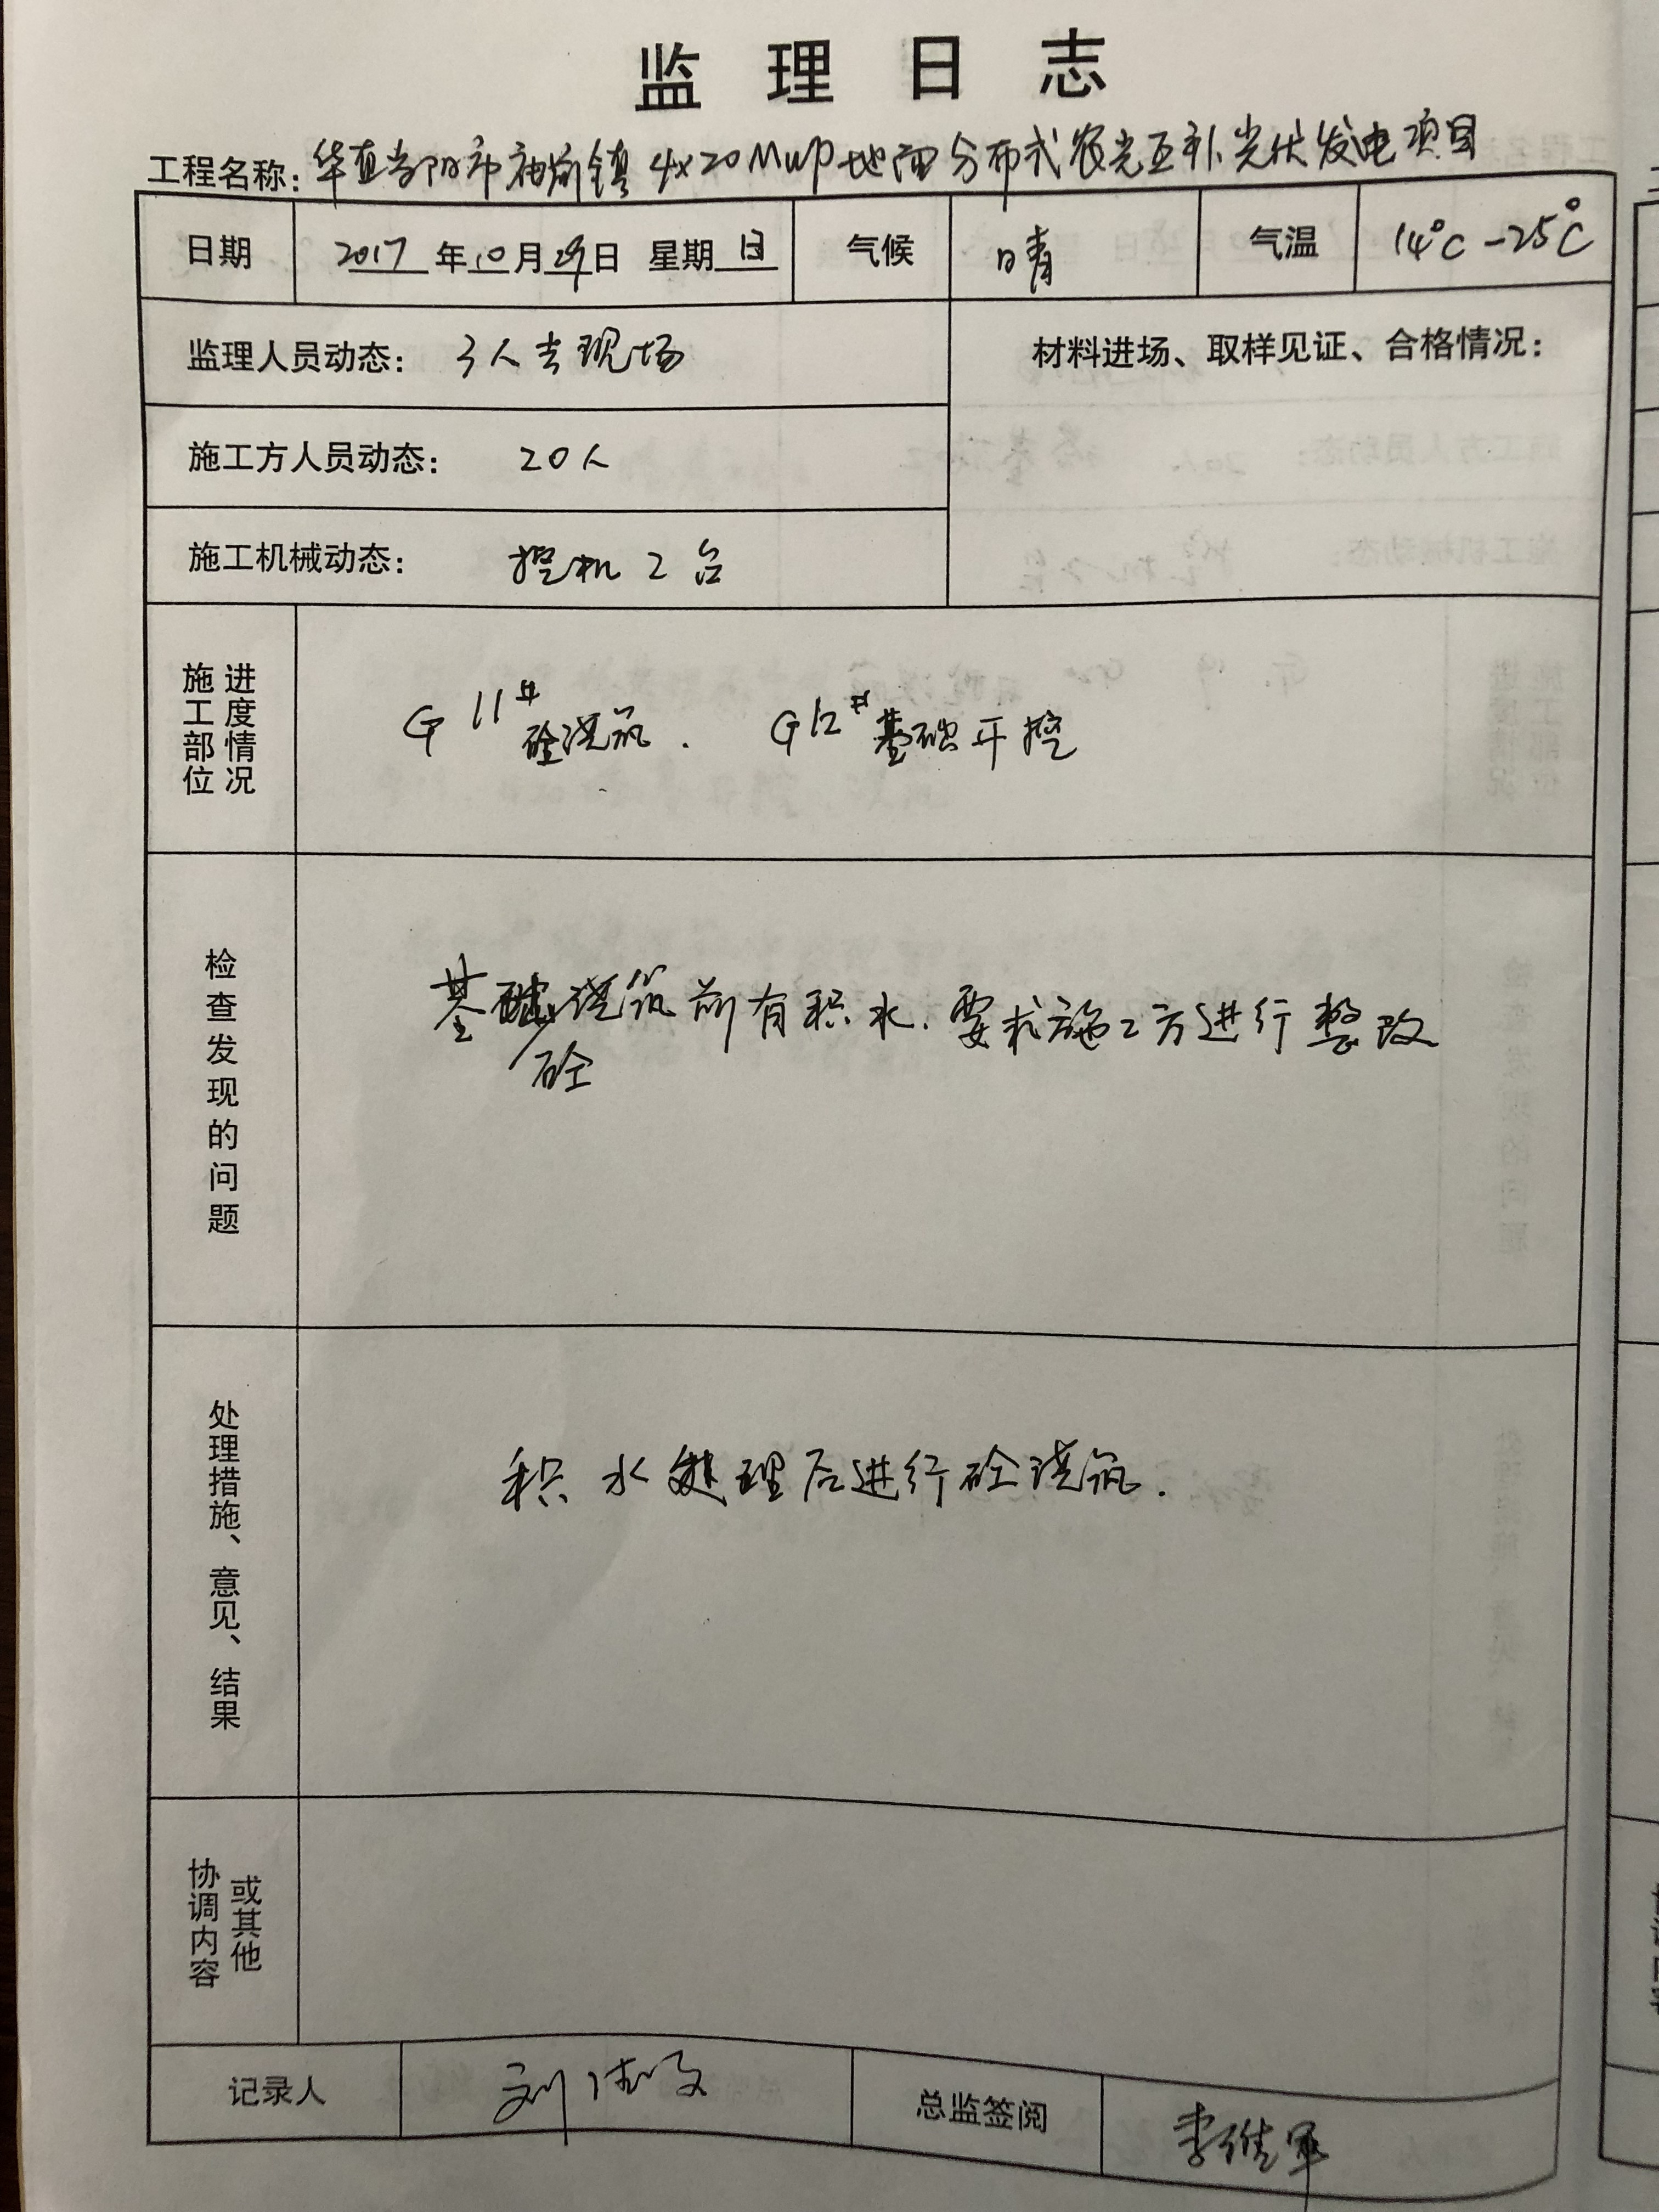 监理日志
工程名称：华直当阳市袖前镇 4x20MWp地面分布式农光互补光伏发电项目
日期 2017年10月29日 星期日 气候 晴 气温 14°C-25°C
监理人员动态： 3人去现场
材料进场、取样见证、合格情况：
施工方人员动态： 20人
施工机械动态： 挖机2台
施工部位进度情况
G11# 砼浇筑. G12# 基础开挖
检查发现的问题
基础砼浇筑前有积水.要求施工方进行整改
处理措施、意见、结果
积水处理后进行砼浇筑.
协调内容或其他
记录人 刘
总监签阅 李维军